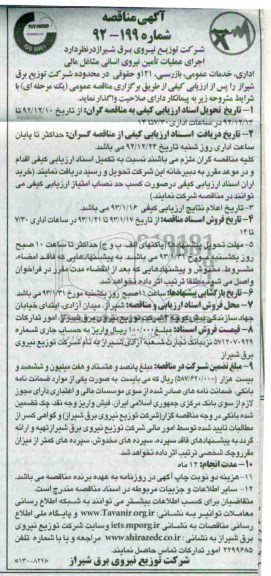 آگهی مناقصه
شماره ۱۹۹-۹۲
شرکت توزیع نیروی برق شیراز در نظر دارد
اجرای عملیات تأمین نیروی انسانی مشاغل مالی
اداری، خدمات عمومی، بازرسی، ۱۲۱ و حقوقی در محدوده شرکت توزیع برق
شیراز را پس از ارزیابی کیفی از طریق برگزاری مناقصه عمومی (یک مرحله ای) با
شرایط مشروحه زیر به پیمانکار دارای صلاحیت واگذار نماید.
۱- تاریخ تحویل اسناد ارزیابی کیفی به مناقصه گران: از تاریخ ۹۲/۱۲/۱۰ تا
۹۲/۱۲/۱۲ در ساعات اداری ۷/۳۰ تا ۱۴
۲- تاریخ دریافت اسناد ارزیابی کیفی از مناقصه گران: حداکثر تا پایان
ساعت اداری روز شنبه تاریخ ۹۲/۱۲/۲۴ می باشد.
کلیه مناقصه گران ملزم می باشند نسبت به تکمیل اسناد ارزیابی کیفی اقدام
و در موعد مقرر به دبیرخانه این شرکت تحویل و رسید دریافت نمایند. (خرید
اران اسناد ارزیابی کیفی درصورت کسب حد نصاب امتیاز ارزیابی کیفی می
توانند در مناقصه شرکت نمایند.)
۳- تاریخ اعلام نتایج ارزیابی کیفی ۹۳/۱/۱۶ می باشد.
۴- تاریخ فروش اسناد مناقصه: از تاریخ ۹۳/۱/۱۷ تا ۹۳/۱/۲۱ در ساعات اداری ۷/۳۰
تا ۱۴
۵- مهلت تحویل پیشنهادها (پاکتهای الف، ب و ج) حداکثر تا ساعت ۱۰ صبح
روز یکشنبه مورخ ۹۳/۱/۳۱ می باشد. به پیشنهادهایی که فاقد امضاء،
مشروط، مخدوش و پیشنهادهایی که بعد از انقضاء مدت مقرر در فراخوان
واصل می شود مطلقا ترتیب اثر داده نخواهد شد.
۶- تاریخ بازگشایی پیشنهادها: ساعت ۱۱ صبح روز یکشنبه مورخ ۹۳/۱/۳۱ می باشد.
۷- محل فروش اسناد ارزیابی و مناقصه: شیراز، میدان آزادی، ابتدای خیابان
جهاد سازندگی شرکت توزیع نیروی برق شیراز امور تدارکات
۸- قیمت فروش اسناد: مبلغ ۱۰۰/۰۰۰ ریال واریز به حساب جاری شماره
۵۷۱۲۰۷۰۹۲۹ نزد بانک تجارت شعبه آزادی شیراز به نام شرکت توزیع نیروی
برق شیراز
۹- مبلغ تضمین شرکت در مناقصه: مبلغ پانصد و هشتاد و هفت میلیون و ششصد و
بیست هزار (۵۸۷/۶۲۰/۰۰۰) ریال که می بایست به صورت یکی از موارد ضمانت نامه
بانکی، ضمانت نامه های صادر شده از سوی موسسات مالی و اعتباری دارای مجوز
لازم از سوی بانک مرکزی جمهوری اسلامی ایران، فیش واریز وجه نقد، چک تضمین
شده بانکی در وجه مناقصه گزار (شرکت توزیع نیروی برق شیراز) و گواهی کسر از
مطالبات تایید شده توسط امور مالی شرکت توزیع نیروی برق شیراز تهیه و ارائه
گردد. به پیشنهادهای فاقد سپرده، سپرده های مخدوش، سپرده های کمتر از میزان
مقرر و چک شخصی ترتیب اثر داده نخواهد شد.
۱۰- مدت انجام: ۱۲ ماه
۱۱- هزینه دو نوبت چاپ آگهی در روزنامه به عهده برنده مناقصه می باشد.
۱۲- سایر اطلاعات و جزییات مربوطه در اسناد مناقصه مندرج است.
متقاضیان برای کسب اطلاعات بیشتر می توانند به شبکه اطلاع رسانی
معاملات توانیر به نشانی: www.Tavanir.org.ir و پایگاه ملی اطلاع
رسانی مناقصات به نشانی iets.mporg.ir وسایت شرکت توزیع نیروی
برق شیراز به نشانی: www.shirazedc.co.ir مراجعه و یا با شماره تلفن
۲۲۹۹۶۸۵ امور تدارکات تماس حاصل نمایند.
شرکت توزیع نیروی برق شیراز